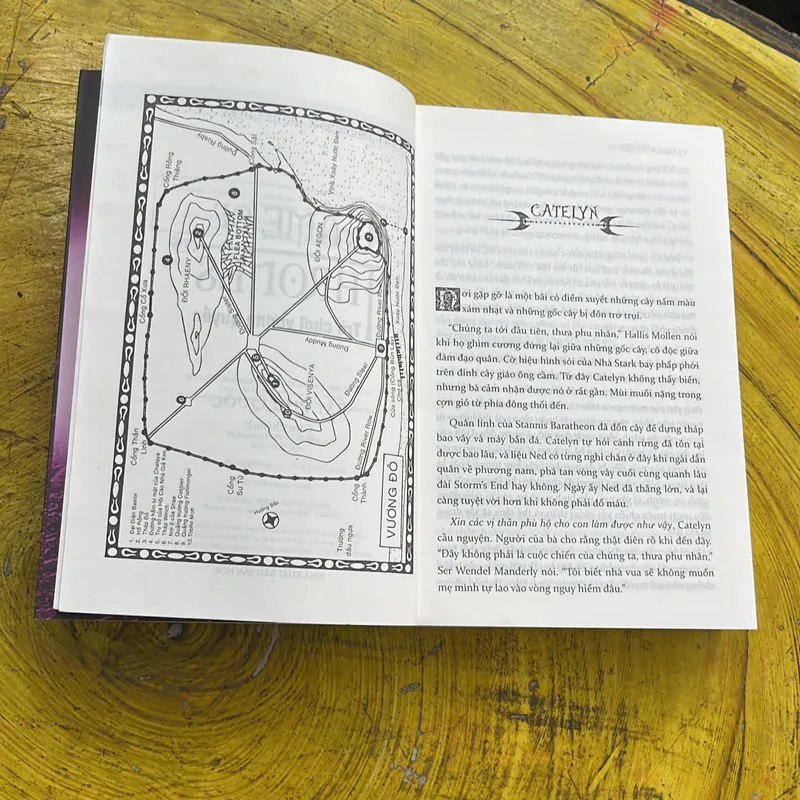 VƯƠNG ĐÔ
1. Đại Điện Baelor
2. Hố Rồng
3. Tháp Đỏ
4. Đường hầm bí mật của Chataya
5. Trụ sở của hội Các Nhà Giả Kim
6. Tháp Winch
7. Nơi ở của Shae
8. Quảng trường Cobbler
9. Quảng trường Fishmonger
10. Tobho Mott
Cổng Rồng Thiêng
Đường Rosby
Cổng Sắt
Vịnh Xoáy Nước Đen
Cổng Cổ Xưa
ĐỒI RHAENY
ĐỒI AEGON
Đường Muddy
ĐỒI VISENYA
Đường Steel
Đường River Row
Cổng Thần Linh
Cổng Sư Tử
Cổng Thành
Trường đấu ngựa
CATELYN
Nơi gặp gỡ là một bãi cỏ điểm xuyết những cây nấm màu
xám nhạt và những gốc cây bị đốn trơ trụi.
“Chúng ta tới đầu tiên, thưa phu nhân,” Hallis Mollen nói
khi họ ghìm cương đứng lại giữa những gốc cây, cô độc giữa
đám đạo quân. Cờ hiệu hình sói của Nhà Stark bay phấp phới
trên đỉnh cây giáo ông cầm. Từ đây Catelyn không thấy biển,
nhưng bà cảm nhận được nó ở rất gần. Mùi muối nặng trong
cơn gió từ phía đông thổi đến.
Quân lính của Stannis Baratheon đã đốn cây để dựng tháp
bao vây và máy bắn đá. Catelyn tự hỏi cánh rừng đã tồn tại
được bao lâu, và liệu Ned có từng nghỉ chân ở đây khi ngài dẫn
quân về phương nam, phá tan vòng vây cuối cùng quanh lâu
đài Storm’s End hay không. Ngày ấy Ned đã thắng lớn, và lại
càng tuyệt vời hơn khi không phải đổ máu.
Xin các vị thần phù hộ cho con làm được như vậy, Catelyn
cầu nguyện. Người của bà cho rằng thật điên rồ khi đến đây.
“Đây không phải là cuộc chiến của chúng ta, thưa phu nhân,”
Ser Wendel Manderly nói. “Tôi biết nhà vua sẽ không muốn
mẹ mình tự lao vào vòng nguy hiểm đâu.”